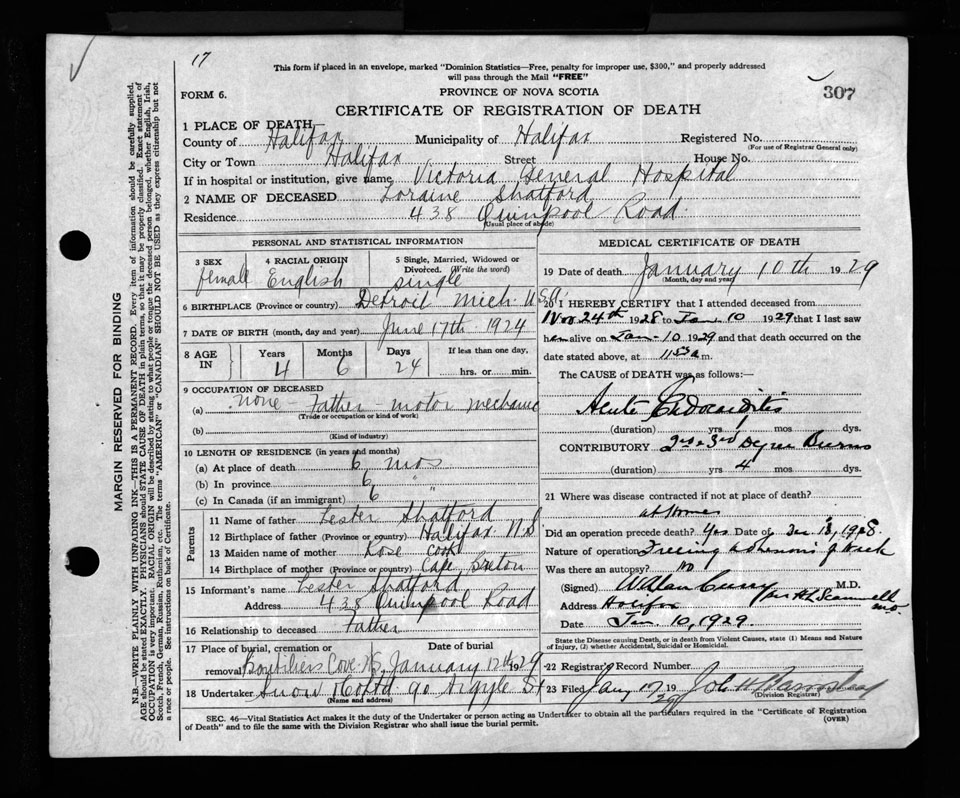 17
This form if placed in an envelope, marked "Dominion Statistics—Free, penalty for improper use, $300," and properly addressed
will pass through the Mail "FREE"
FORM 6.
PROVINCE OF NOVA SCOTIA
307
CERTIFICATE OF REGISTRATION OF DEATH
1 PLACE OF DEATH
County of Halifax Municipality of Halifax Registered No.
(For use of Registrar General only)
City or Town Halifax Street House No.
If in hospital or institution, give name Victoria General Hospital
2 NAME OF DECEASED Loraine Shatford
Residence 438 Quinpool Road
(Usual place of abode)
PERSONAL AND STATISTICAL INFORMATION
3 SEX 4 RACIAL ORIGIN 5 Single, Married, Widowed or
Divorced. (Write the word)
female English single
6 BIRTHPLACE (Province or country) Detroit Mich. U.S.A.
7 DATE OF BIRTH (month, day and year) June 17th 1924
8 AGE IN Years Months Days If less than one day,
4 6 24 hrs. or min.
9 OCCUPATION OF DECEASED
(a) none - Father - motor mechanic
(Trade or occupation or kind of work)
(b)
(Kind of industry)
10 LENGTH OF RESIDENCE (in years and months)
(a) At place of death 6 mos
(b) In province 6 "
(c) In Canada (if an immigrant) 6 "
Parents
11 Name of father Lester Shatford
12 Birthplace of father (Province or country) Halifax N.S
13 Maiden name of mother Rose Cook
14 Birthplace of mother (Province or country) Cape Breton
15 Informant's name Lester Shatford
Address 438 Quinpool Road
16 Relationship to deceased Father
17 Place of burial, cremation or Date of burial
removal Boutiliers Cove N.S. January 12th 1929
18 Undertaker Snow & Co Ltd 90 Argyle St
(Name and address)
MEDICAL CERTIFICATE OF DEATH
19 Date of death January 10th 1929
(Month, day and year)
20 I HEREBY CERTIFY that I attended deceased from
Nov 24th 1928 to Jan. 10 1929 that I last saw
her alive on Jan. 10 1929 and that death occurred on the
date stated above, at a m.
The CAUSE of DEATH was as follows:—
Acute Endocarditis
(duration) yrs mos dys.
CONTRIBUTORY 2nd & 3rd Degree Burns
(duration) yrs 4 mos dys.
21 Where was disease contracted if not at place of death?
at home
Did an operation precede death? Yes Date of Dec 1928
Nature of operation Freeing adhesions of neck
Was there an autopsy? No
(Signed) W Alan Curry M.D.
Address Halifax
Date Jan. 10, 1929
State the Disease causing Death, or in death from Violent Causes, state (1) Means and Nature
of Injury, and (2) whether Accidental, Suicidal or Homicidal.
22 Registrar's Record Number
23 Filed Jany 19
(Division Registrar)
SEC. 46—Vital Statistics Act makes it the duty of the Undertaker or person acting as Undertaker to obtain all the particulars required in the "Certificate of Registration
of Death" and to file the same with the Division Registrar who shall issue the burial permit.
(OVER)
MARGIN RESERVED FOR BINDING
N.B.—WRITE PLAINLY WITH UNFADING INK—THIS IS A PERMANENT RECORD. Every item of information should be carefully supplied.
AGE should be stated EXACTLY. PHYSICIANS should STATE CAUSE OF DEATH in plain terms, so that it may be properly classified. Exact statement of
OCCUPATION is very important. RACIAL ORIGIN will be described by stating to what people or tongue the deceased person belonged, whether English, Irish,
Scotch, French, German, Russian, Ruthenian, etc. The terms "AMERICAN" or "CANADIAN" SHOULD NOT BE USED as they express citizenship but not
a race or people. See instructions on back of Certificate.